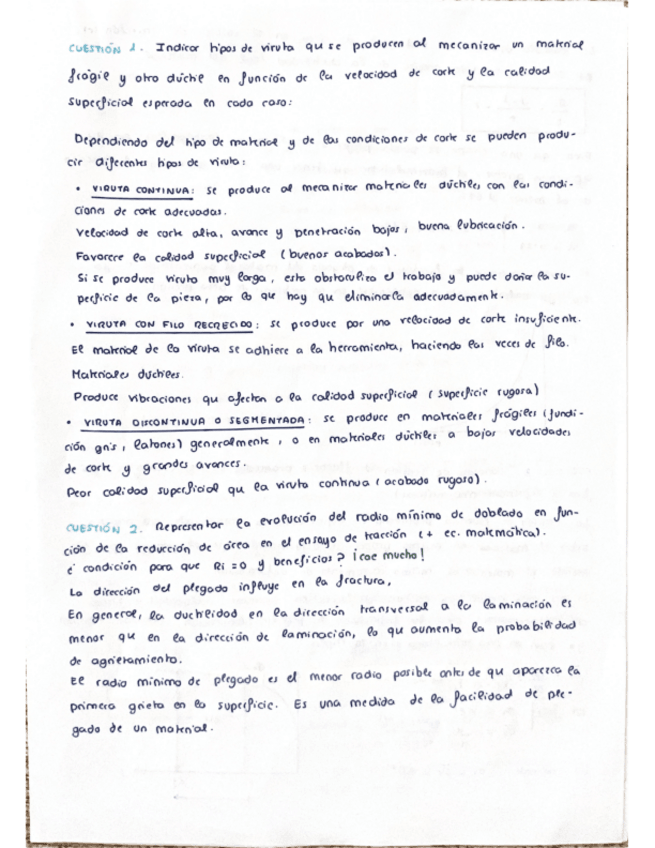 CUESTIÓN 1. Indicar tipos de viruta que se producen al mecanizar un material
frágil y otro dúctil en función de la velocidad de corte y la calidad
superficial esperada en cada caso:
Dependiendo del tipo de material y de las condiciones de corte se pueden produ-
cir diferentes tipos de viruta:
• VIRUTA CONTINUA: se produce al mecanizar materiales dúctiles con las condi-
ciones de corte adecuadas.
Velocidad de corte alta, avance y penetración bajos, buena lubricación.
Favorece la calidad superficial (buenos acabados).
Si se produce viruta muy larga, esta obstaculiza el trabajo y puede dañar la su-
perficie de la pieza, por lo que hay que eliminarla adecuadamente.
• VIRUTA CON FILO RECRECIDO: se produce por una velocidad de corte insuficiente.
El material de la viruta se adhiere a la herramienta, haciendo las veces de filo.
Materiales dúctiles.
Produce vibraciones que afectan a la calidad superficial (superficie rugosa)
• VIRUTA DISCONTINUA O SEGMENTADA: se produce en materiales frágiles (fundi-
ción gris, latones) generalmente, o en materiales dúctiles a bajas velocidades
de corte y grandes avances.
Peor calidad superficial que la viruta continua (acabado rugoso).
CUESTIÓN 2. Representar la evolución del radio mínimo de doblado en fun-
ción de la reducción de área en el ensayo de tracción (+ ec. matemática).
¿ condición para que Ri = 0 y beneficios? ¡cae mucho!
La dirección del plegado influye en la fractura.
En general, la ductilidad en la dirección transversal a la laminación es
menor que en la dirección de laminación, lo que aumenta la probabilidad
de agrietamiento.
El radio mínimo de plegado es el menor radio posible antes de que aparezca la
primera grieta en la superficie. Es una medida de la facilidad de ple-
gado de un material.